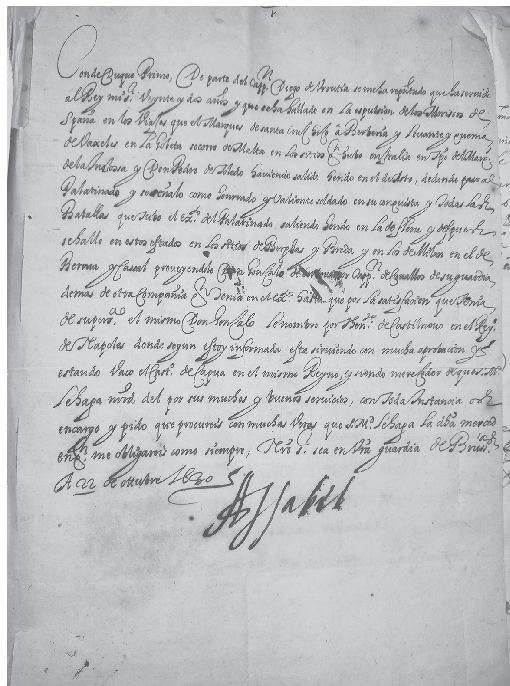 Conde Duque Primo, De parte del Capp.n Diego de Urrutia se me ha repressentado que ha servido
al Rey mi s.r Veynte y dos años y que se ha hallado en la expulsion de los Moriscos de
España en los Viajes que el Marques de santa Cruz hizo a Berberia y Levante y quema
de Vaxeles en la Goleta socorro de Malta en los sitios hubo en Italia en Tp.o del Marq.s
de la Inoxossa y Don Pedro de Toledo haviendo salido herido en el de Asti, de donde passo al
Palatinado y se señalo como honrado y Valiente soldado en su conquista y todas las
Batallas que tubo el ex.to del Palatinado, saliendo herido en la de Floru y despues
se hallo en estos estados en los sitios de Berghas y Breda y en los de Milan en el de
Berrua y Casal proveyendole Don Gonzalo de Cap.n de Cavallos de su guardia
demas de otra Compañia q tenia en el ex.to hasta que por la satisfacion que tenia
de su pers.a el mismo Don Gonzalo le nombro por Then.te de Castillano en el Rey.o
de Napoles donde segun estoy informada esta sirviendo con mucha aprobacion y
estando Vaco el Cast.o de Capua en el mismo Reyno, y siendo merecedor de que s. M.d
le haga mrd. del por sus muchos y buenos servicios, con toda Instancia os
encargo y pido que procureis con muchas Veras que S. M.d le haga la dha merced
en q me obligareis como siempre, Nro s.r sea en Vra guardia de Brus.as
A 22 de ottubre 1630
A Isabel